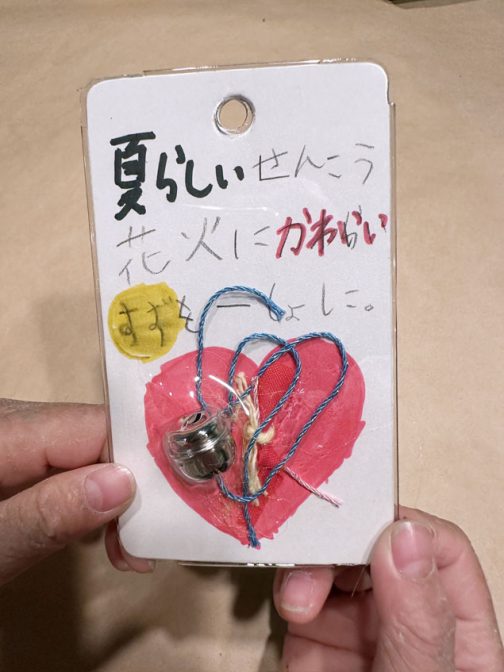 夏らしいせんこう
花火にかわいい
すずも一しょに。